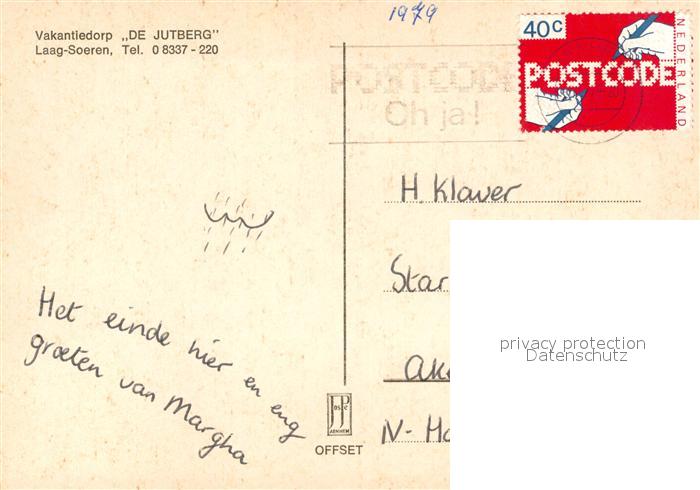 Vakantiedorp „DE JUTBERG”
Laag-Soeren, Tel. 0 8337 - 220
1979
40c
POSTCODE
NEDERLAND
POSTCODE
Oh ja!
H. Klaver
Star
Ak
N-Ho
Het einde hier en eng
groeten van Margha
JosPé
ARNHEM
OFFSET
privacy protection
Datenschutz